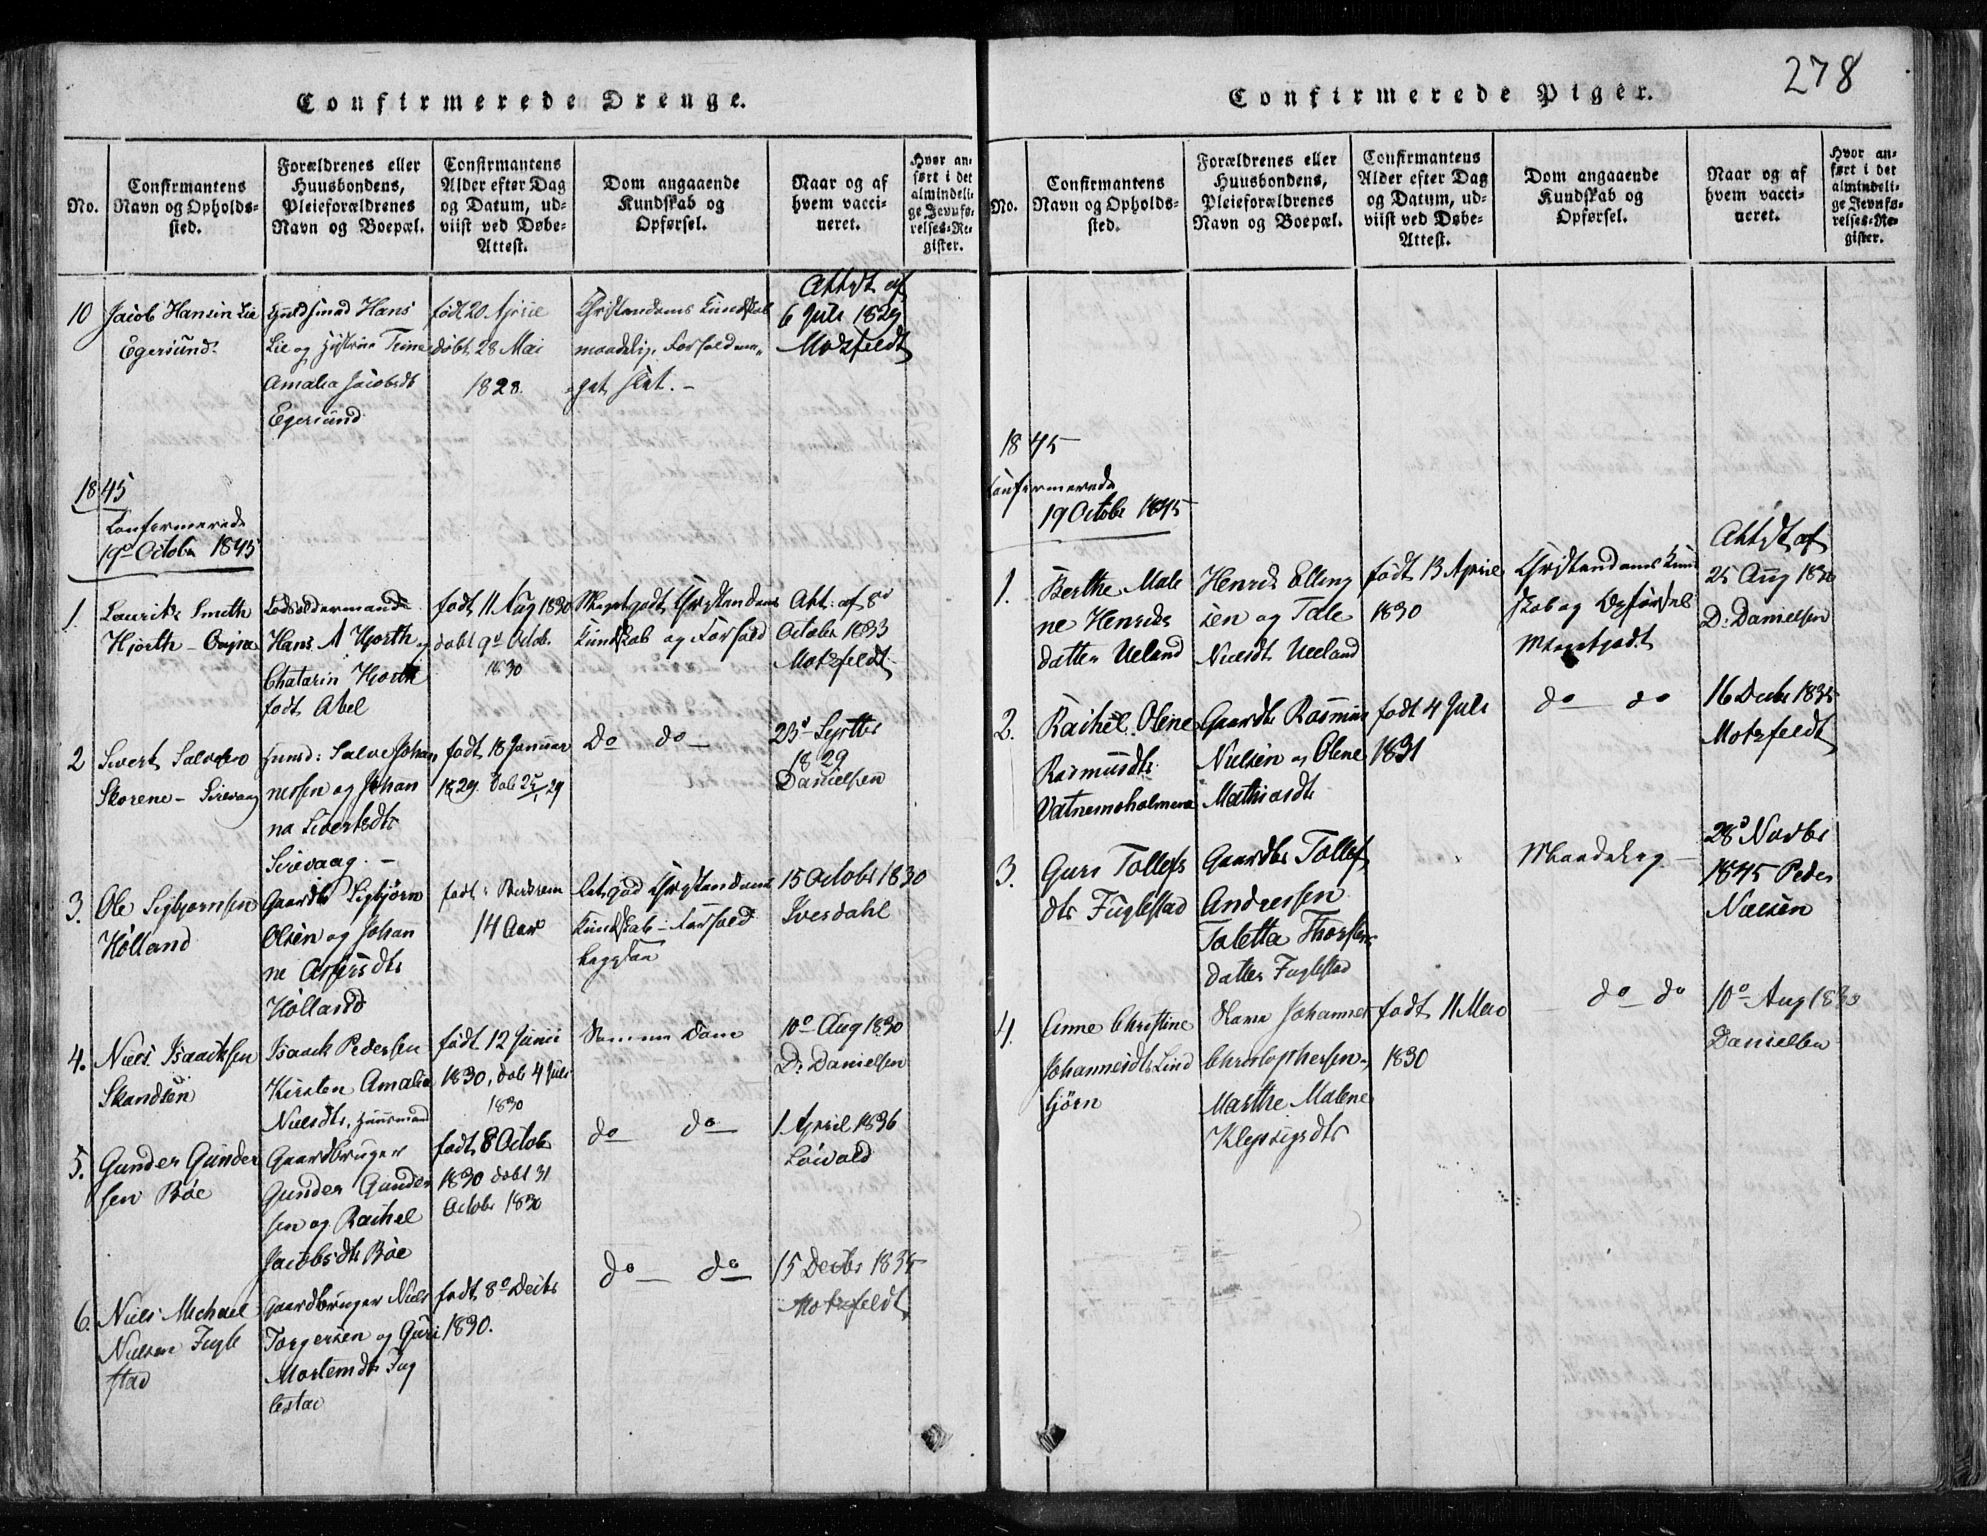 278
Confirmerede Drenge.
No.
Confirmantens
Navn og Opholds-
sted.
Forældrenes eller
Huusbondens,
Pleieforældrenes
Navn og Boepæl.
Confirmantens
Alder efter Dag
og Datum, ud-
viist ved Døbe-
Attest.
Dom angaaende
Kundskab og
Opførsel.
Naar og af
hvem vacci-
neret.
Hvor an-
ført i det
almindeli-
ge Jevnfø-
relses-Re-
gister.
10
Jacob Hansen Lie
Egersund.
Hans
Lie og Hustrue Trine
Amalia Jacobsdt
Egersund
født 20 Aprile
døbt 28 Mai
1828.
Christendoms Kundskab
maadelig. Forhold me-
get slet. -
Attest af
6 Juli 1829
Motzfeldt
1845
Confermerede
19de Octobr 1845
1
Lauritz Smith
Hjorth -
Lodsoldermand
Hans A Hjorth og
Chatarin Hjorth
født Abel
født 11 Aug 1830
døbt 9d Octob.
1830
Meget godt Christendoms
Kundskab og Forhold
Att. af 8d
October 1833
Motzfeldt
2
Sivert Salvesen
Skorene - Sirevaag
Huusd: Salve Johan
nessen og Johan
na Sivertsdtr
Sirevaag. -
født 18 Januar
1829. døbt 25/1 29
Do do -
23d Septbr
1829
Danielsen
3.
Ole Sigbjørnsen
Hølland
Gaardbr Sigbjørn
Olsen og Johan
ne Asgersdtr
Hølland
født:
14 Aar
Christendoms
Kundskab - Forhold
begge
15 Octobr 1830
Ivesdahl
4.
Niels Isaacksen
Skandsen
Isaack Pedersen
Kirsten Amalia
Nielsdtr, Huusmand
født 12 Junii
1830, døbt 4 Juli
1830
Samme Dom
10d Aug 1830
D: Danielsen
5.
Gunder Gunder
sen Bøe
Gaardbruger
Gunder Gunder
sen og Rachel
Jacobsdtr Bøe
født 8 Octob
1830 døbt 31
Octobr 1830
do do
1 April 1836
Løivold
6.
Niels Michael
Nielsen Fugle
stad
Gaardbruger Niels
Torgersen og Guri
Mortensdtr Fug
lestad
født 8d Decbr
1830.
do do
15 Decbr 1835
Motzfeldt
Confirmerede Piger.
No.
Confirmantens
Navn og Opholds-
sted.
Forældrenes eller
Huusbondens,
Pleieforældrenes
Navn og Boepæl.
Confirmantens
Alder efter Dag
og Datum, ud-
viist ved Døbe-
Attest.
Dom angaaende
Kundskab og
Opførsel.
Naar og af
hvem vacci-
neret.
Hvor an-
ført i det
almindeli-
ge Jevnfø-
relses-Re-
gister.
1845
Confermerede
19 Octobr 1845
1.
Berthe Male
ne Henriks
datter Ueland
Henrik Elling
sen og Tale
Nielsdt Ueland
født 13 Aprile
1830
Christendoms Kund
skab og Opførsel
Meget godt
Attest af
25 Aug 1830
D: Danielsen
2.
Rachel Olene
Rasmusdtr
Vatnemsholmene
Gaardbr Rasmus
Nielsen og Olene
Mathiasdtr
født 4 Juli
1831
do do
16 Decbr 1835
Motzfeldt
3.
Guri Tollefs
dtr Fuglestad
Gaardbr Tollef
Andressen
Taletta Thorsens
datter Fuglestad
Maadelig -
28d Novbr
1845 Peder
Nielsen
4.
Anne Christine
Johannesdtr Lind
tjørn
Johannes
Christophersen,
Marthe Malene
født 11 Mai
1830
do do
10d Aug 1830
Danielsen